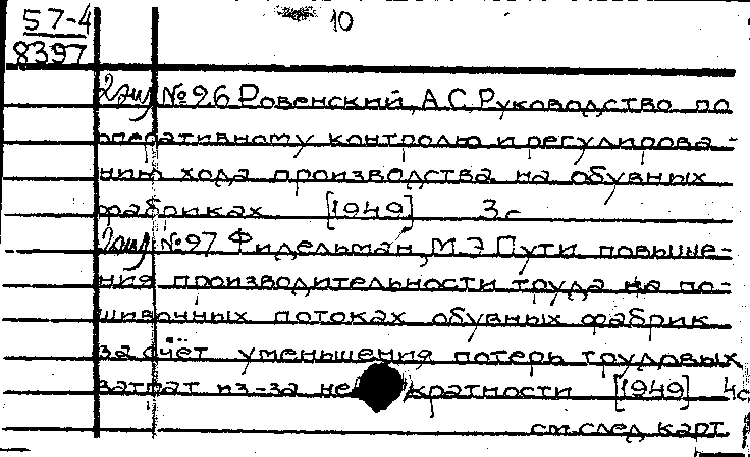 57-4
10
8397
2 экз № 96 Ровенский, А.С. Руководство по
оперативному контролю и регулирова-
нию хода производства на обувных
фабриках [1949] 3 с
2 экз № 97 Фидельман, М.Э Пути повыше-
ния производительности труда на по-
шивочных потоках обувных фабрик
за счёт уменьшения потерь трудовых
затрат из-за не кратности [1949] 4с
см. след карт